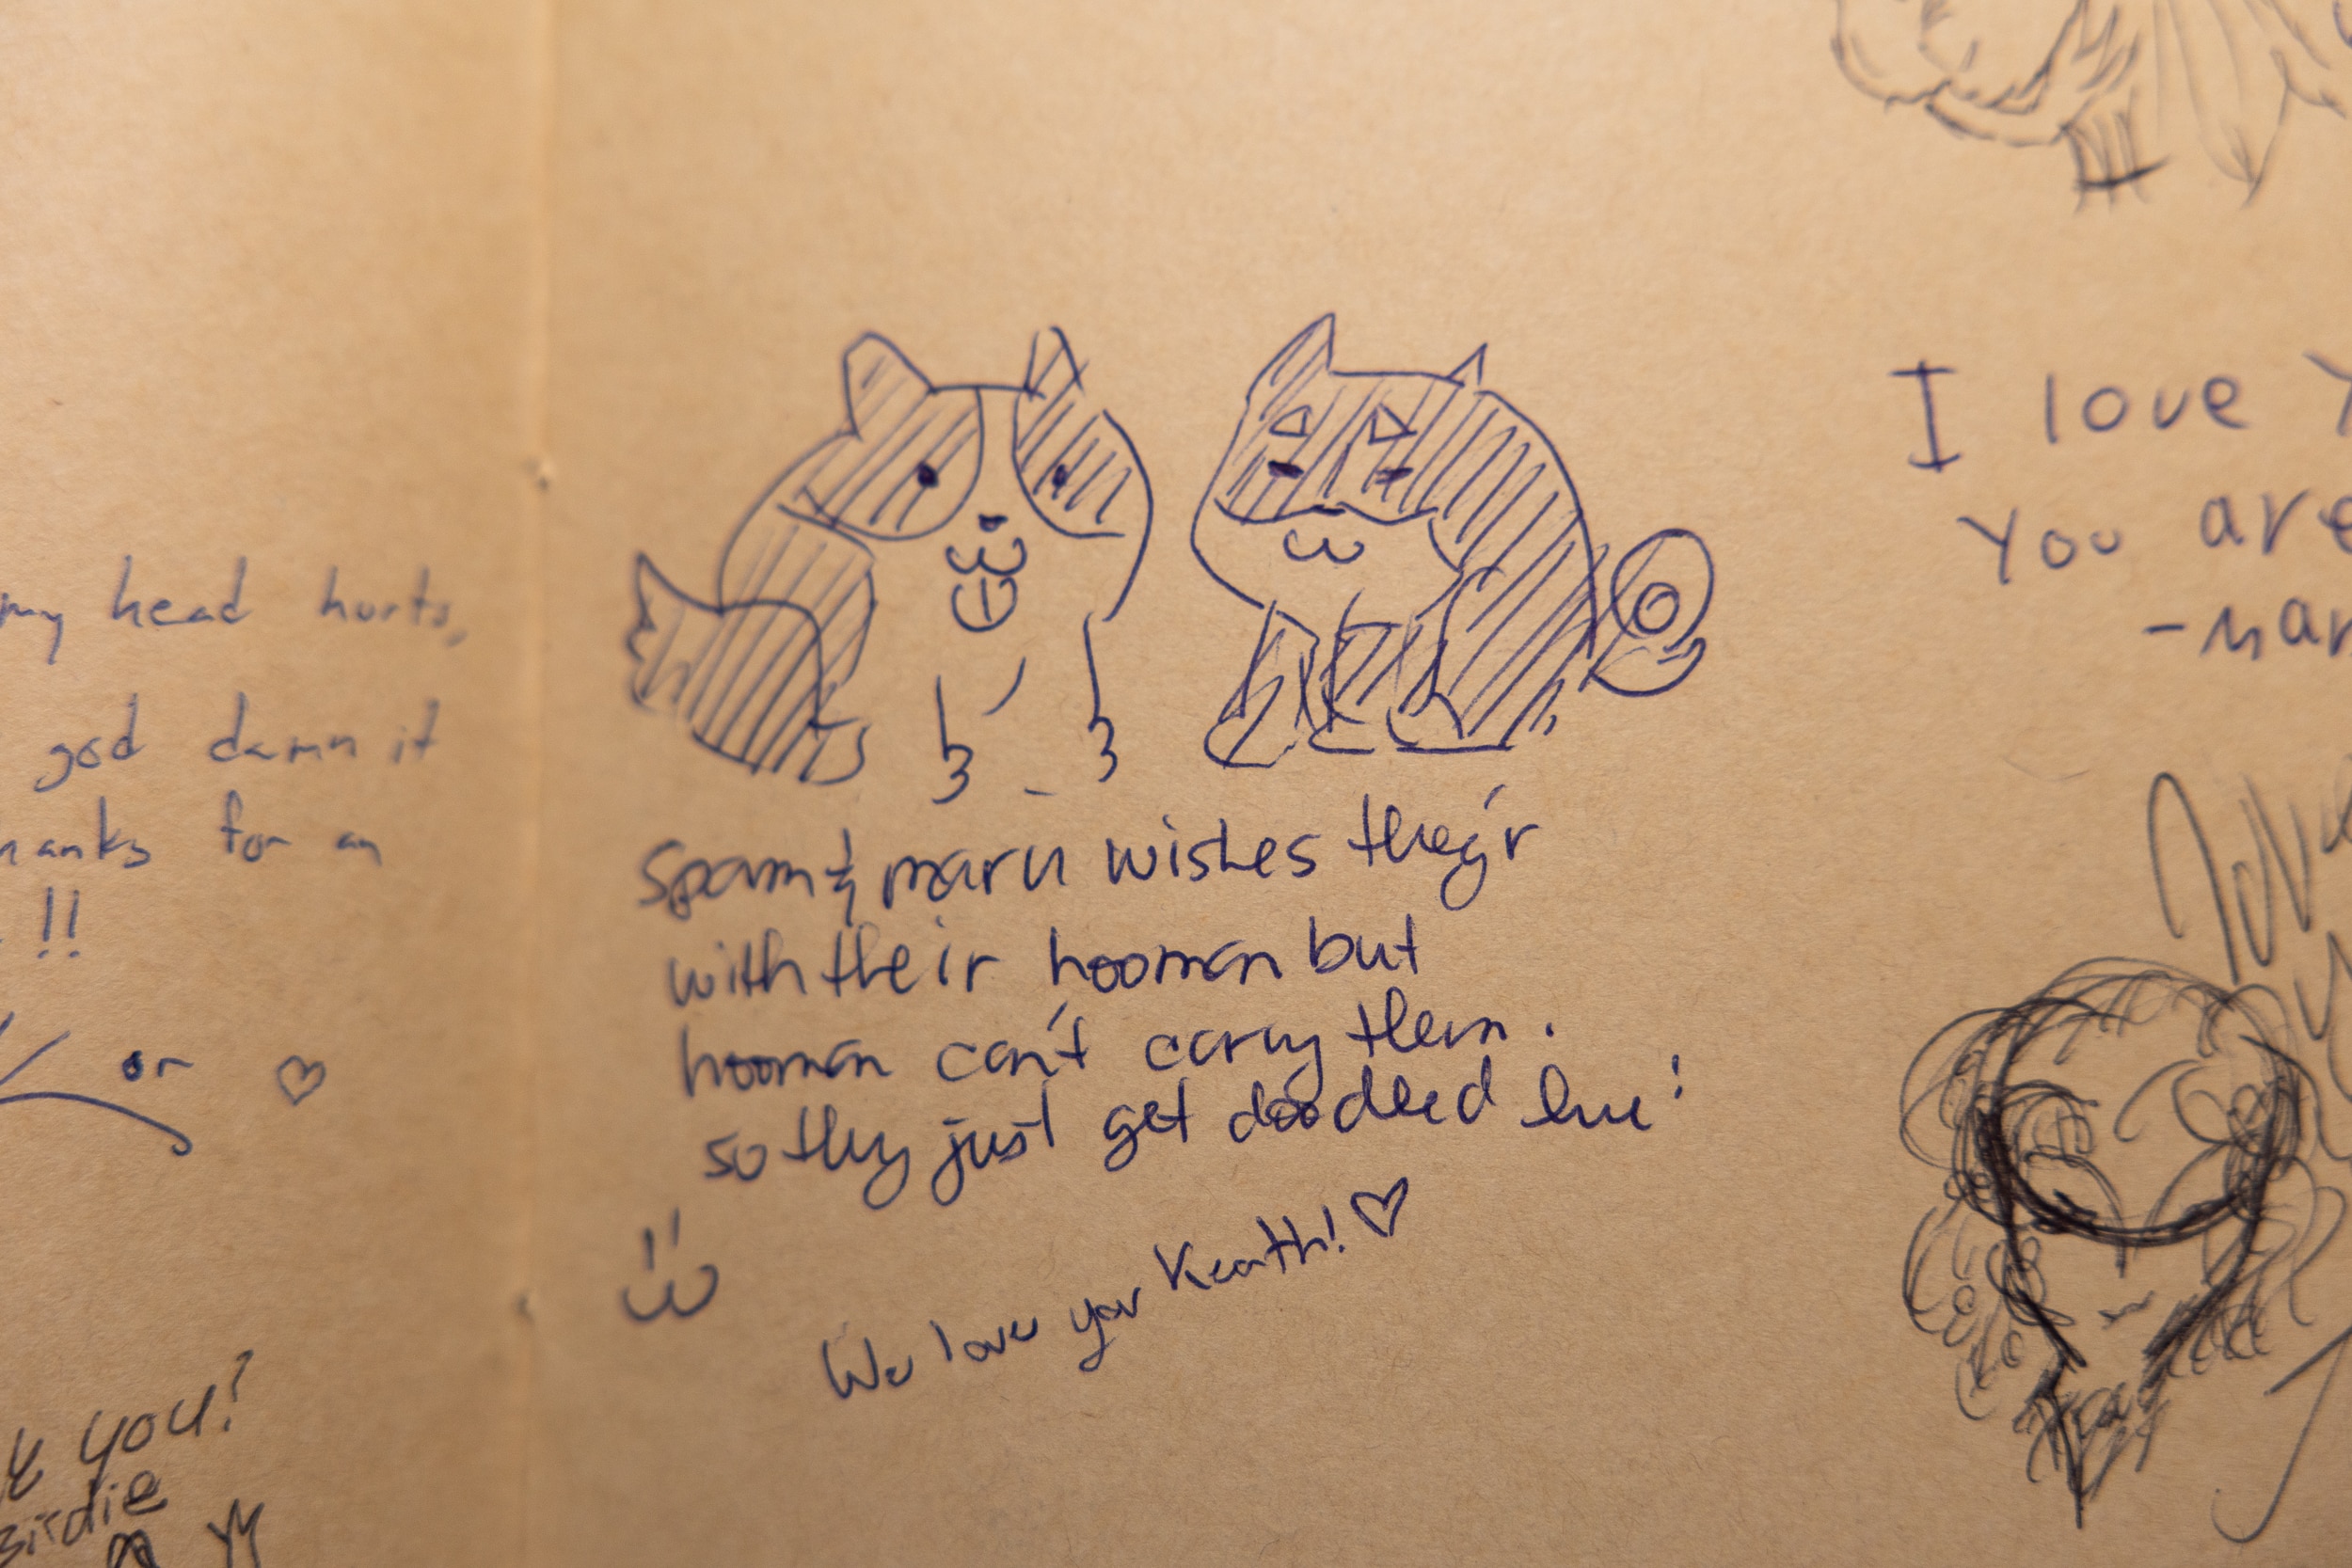 my head hurts,
god damn it
for an
!!
or ♡
you?
Birdie
Spam & maru wishes they'r
with their hooman but
hooman can't carry them.
so they just get doodled here!
We love you Keath! ♡
I love
You are